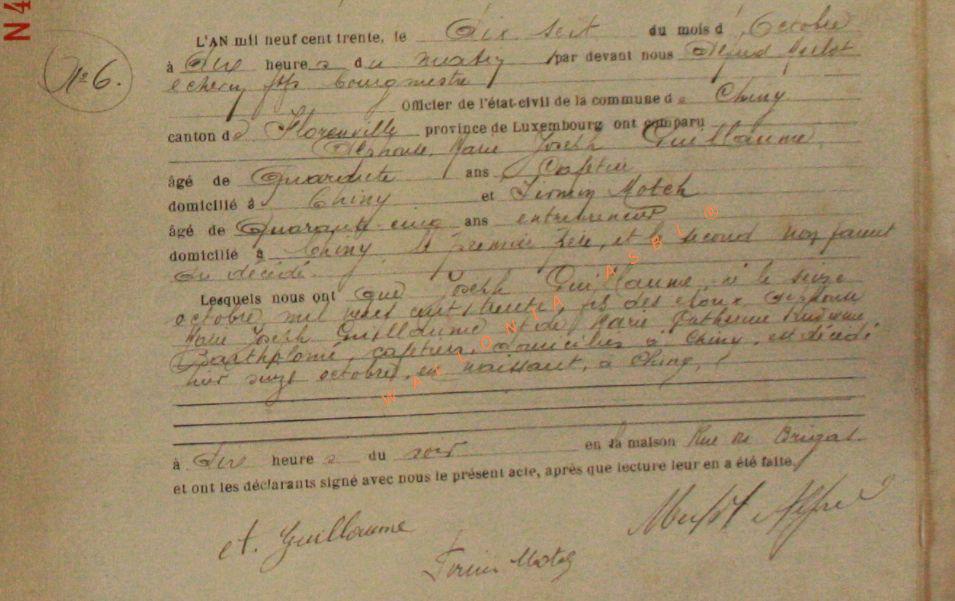 N4
N° 6.
L'AN mil neuf cent trente, le dix sept du mois d' Octobre
à dix heure s du matin par devant nous Alfred
échevin ffs bourgmestre
Officier de l'état-civil de la commune de Chiny
canton de Florenville province de Luxembourg ont comparu
Alphonse Marie Joseph Guillaume,
âgé de Quarante ans Cafetier
domicilié à Chiny et Firmin Motch
âgé de Quarante cinq ans entrepreneur
domicilié à Chiny, le premier père, et le second non parent
du décédé.
Lesquels nous ont que Joseph Guillaume, né le seize
octobre mil neuf cent trente, fils des époux Alphonse
Marie Joseph Guillaume et de Marie Catherine
Bartholomé, cafetiers, domiciliés à Chiny, est décédé
hier seize octobre, en naissant, à Chiny,
à dix heure s du soir en la maison Rue du
et ont les déclarants signé avec nous le présent acte, après que lecture leur en a été faite.
A. Guillaume
Alfred
Firmin Motch
WALLONIA ASBL ©